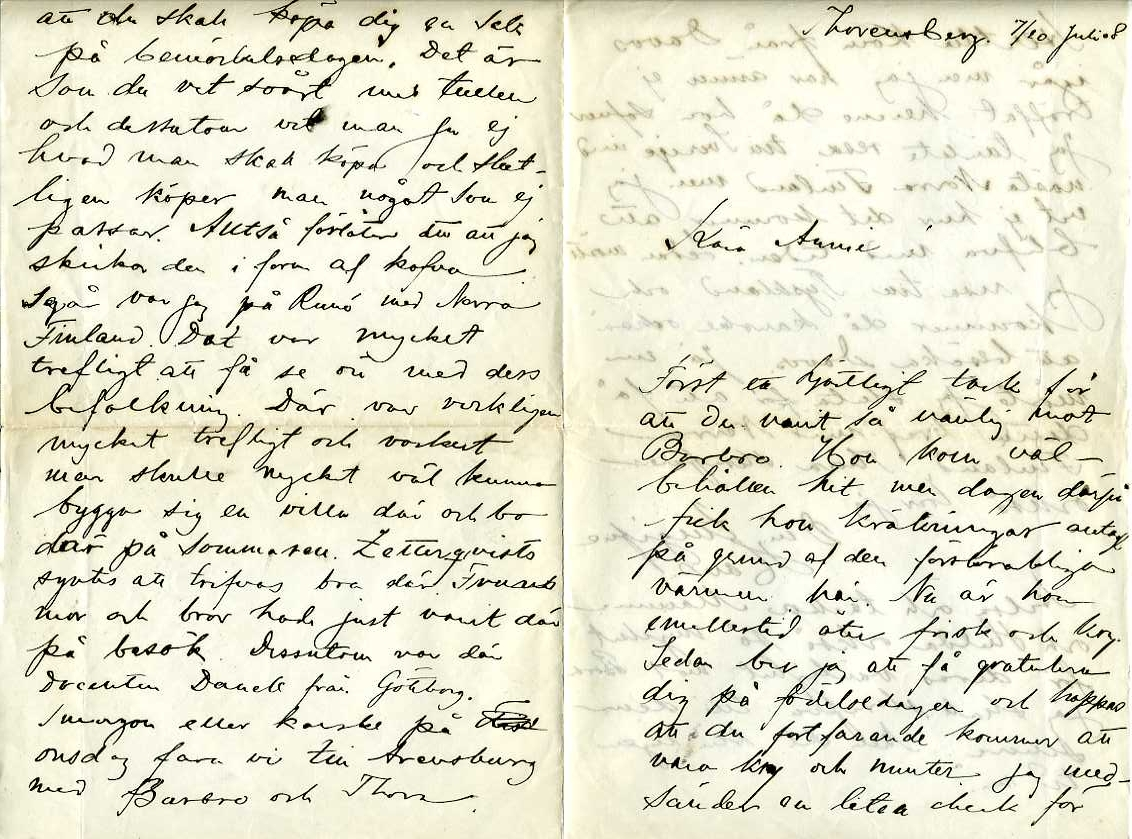 Thorensberg. 7/20 Juli 08
Kära Annie!
Först ett hjärtligt tack för
att du varit så vänlig mot
Barbro. Hon kom väl-
behållen hit men dagen därpå
fick hon kräkningar antagl
på grund af den förskräckliga
värmen här. Nu är hon
emellertid åter frisk och kry.
Sedan ber jag att få gratulera
dig på födelsedagen och hoppas
att du fortfarande kommer att
vara kry och munter. Jag med-
sänder en liten check för
att du skall köpa dig en sak
på bemärkelsedagen. Det är
som du vet svårt med tullen
och dessutom vet man ju ej
hvad man skall köpa och slut-
ligen köper man något som ej
passar. Alltså förlåter du att jag
skickar den i form af kofva
Igår var jag på Runö med Norra
Finland. Det var mycket
trefligt att få se ön med dess
befolkning. Där var verkligen
mycket trefligt och vackert
man skulle mycket väl kunna
bygga sig en villa där och bo
där på sommaren. Zetterqvists
syntes att trifvas bra där.
mor och bror hade just varit där
på besök. Dessutom var där
Docenten Danell från Göteborg.
Imorgon eller kanske på
onsdag fara vi till Arensburg
med Barbro och Thora.